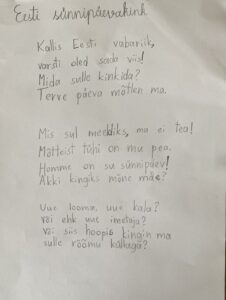 Eesti sünnipäevakink
Kallis Eesti vabariik,
varsti oled sada viis!
Mida sulle kinkida?
Terve päeva mõtlen ma.
Mis sul meeldiks, ma ei tea!
Mõtteist tühi on mu pea.
Homme on su sünnipäev!
Äkki kingiks mõne mäe?
Uue looma, uue kala?
Või ehk uue imetaja?
Või siis hoopis kingin ma
sulle rõõmu kallaga?